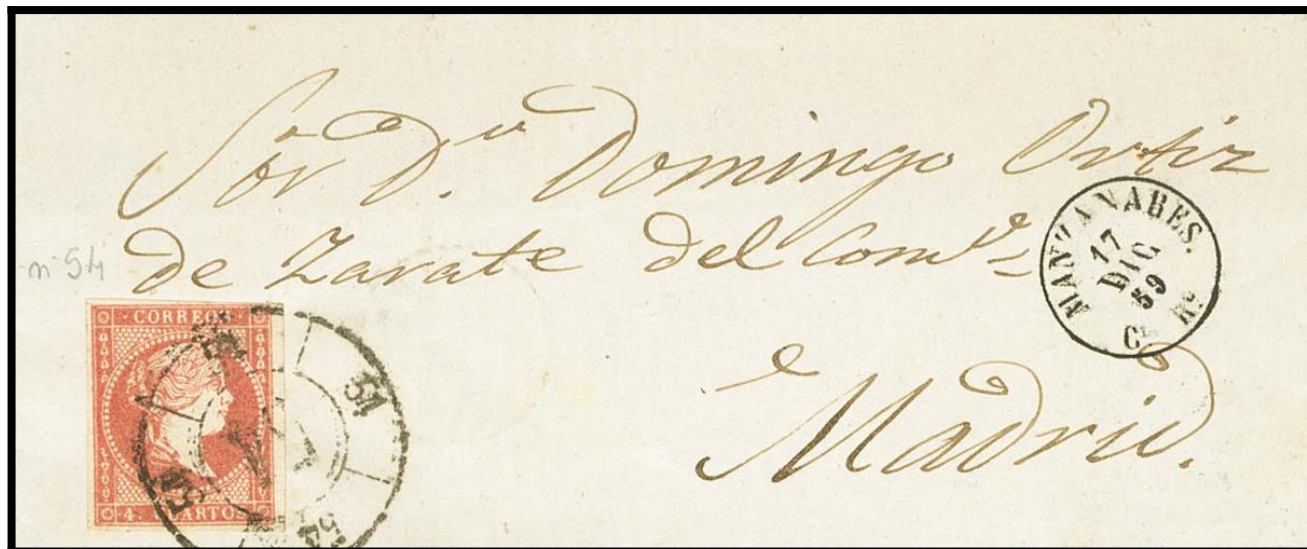 Sor. D.n Domingo Ortiz
de Zarate del Com.o
MANZANARES.
17
DIC
59
Cd. Rl.
nº 54
CORREOS
4. CUARTOS
54
54
54
Madrid.